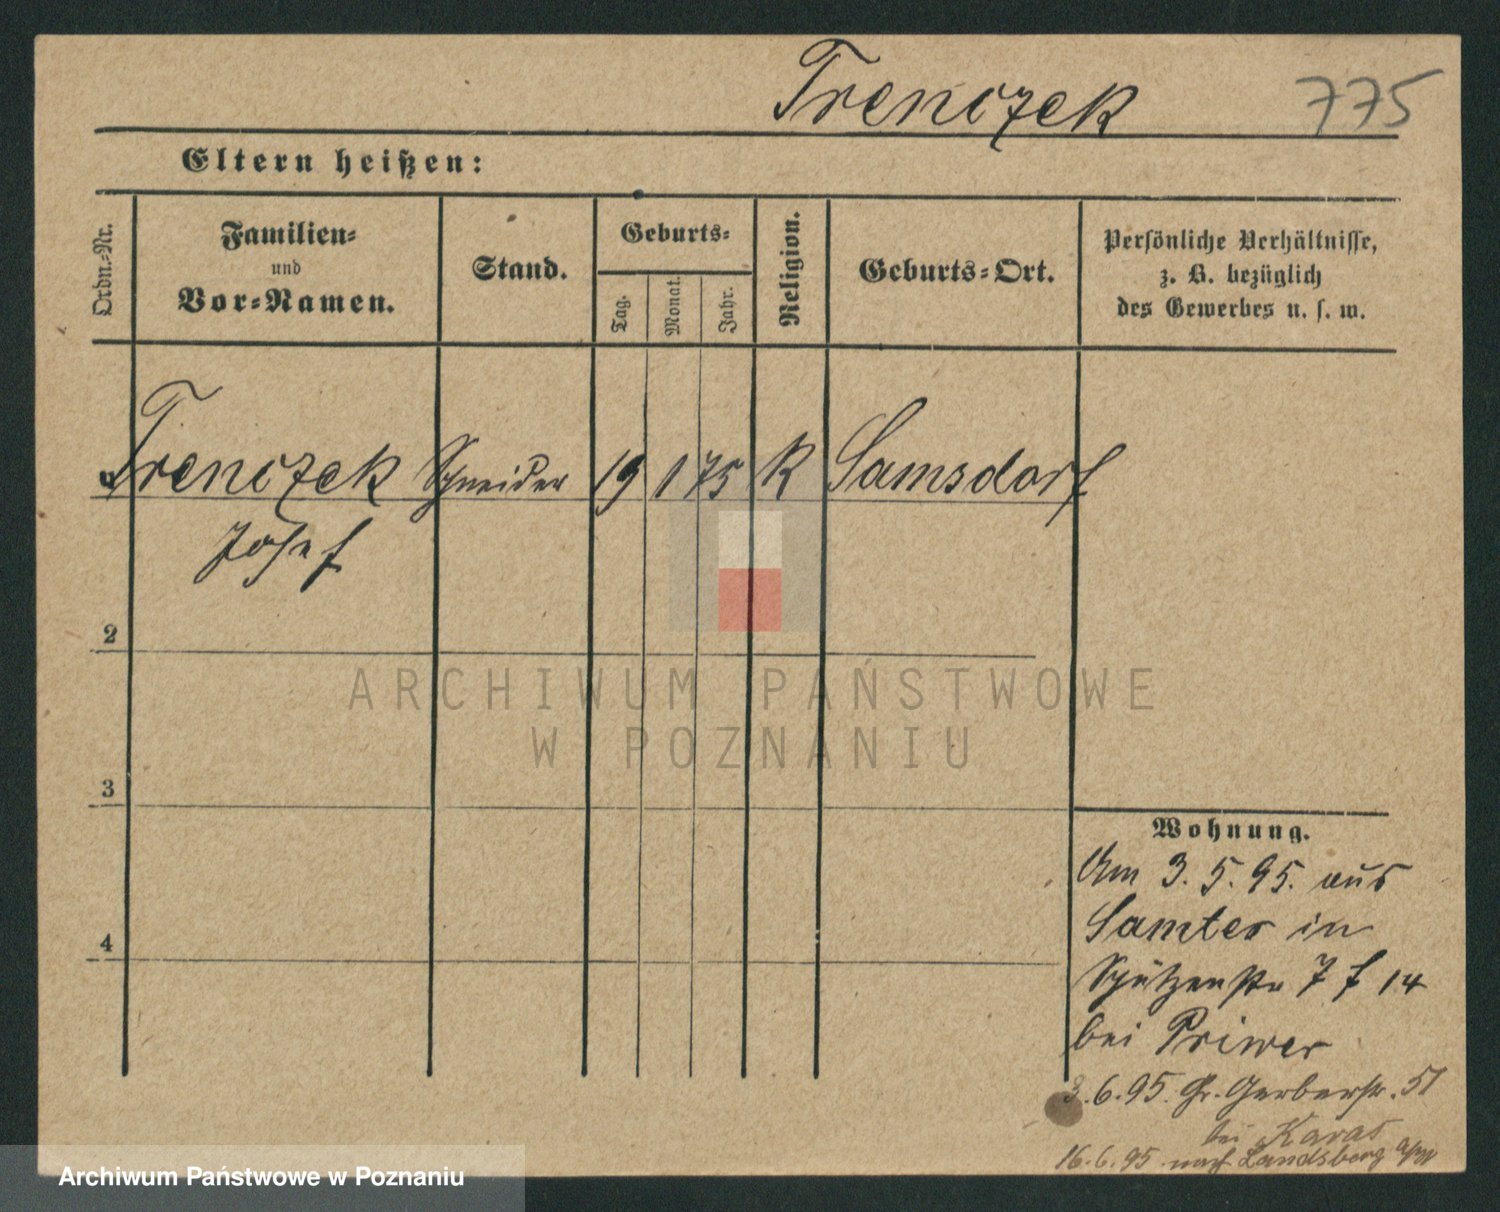 Trenczek 775
Eltern heißen:
Ordn.-Nr.
Familien-
und
Vor-Namen.
Stand.
Geburts-
Tag.
Monat.
Jahr.
Religion.
Geburts-Ort.
Persönliche Verhältnisse,
z. B. bezüglich
des Gewerbes u. s. w.
Trenczek Schneider 19 1 75 K Samsdorf
Josef
2
ARCHIWUM PAŃSTWOWE
W POZNANIU
3
4
Wohnung.
Am 3. 5. 95. aus
Samter in
Schützenstr 7 14
bei Priwer
3.6.95. Gr. Gerberstr. 51
bei Karas
16.6.95 nach Landsberg
Archiwum Państwowe w Poznaniu